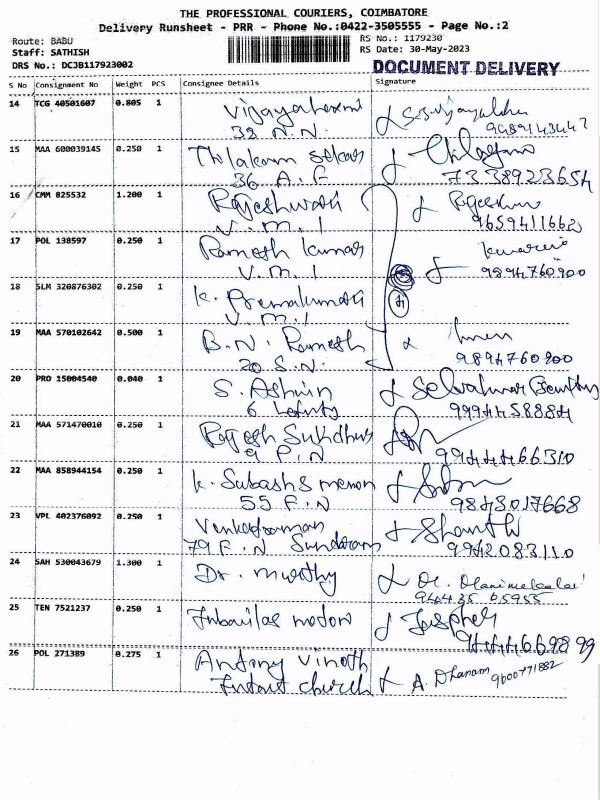 THE PROFESSIONAL COURIERS, COIMBATORE
Delivery Runsheet - PRR - Phone No.:0422-3505555 - Page No.:2
Route: BABU
Staff: SATHISH
DRS No.: DCJB117923002
RS No.: 1179230
RS Date: 30-May-2023
DOCUMENT DELIVERY
S No Consignment No Weight PCS Consignee Details Signature
14 TCG 40501607 0.805 1 Vijayalaxmi
38 N.N.
15 MAA 600039145 0.250 1 Thilakam Sekar
36 A.F 7338923654
16 CMM 825532 1.200 1 Rajeshwari
V.M.1 9659411662
17 POL 138597 0.250 1 Ramesh Kumar
V.M.1 9894760900
18 SLM 320876302 0.250 1 K. Premakumari
V.M.1
19 MAA 570102642 0.500 1 B.N. Ramesh
20 S.N. 9894760900
20 PRO 15004540 0.040 1 S. Ashwin
6 9994458884
21 MAA 571470010 0.250 1 Rajesh
9 P.N 9944466310
22 MAA 858944154 0.250 1 K. Subash S menon
55 F.N 9843017668
23 VPL 402376092 0.250 1 Venkatraman Shanthi
79 F.N Sundaram 9942083110
24 SAH 530043679 1.300 1 Dr. Murthy Dr. Manimekalai
94435 65955
25 TEN 7521237 0.250 1 motors
9444669899
26 POL 271389 0.275 1 Antony Vinoth
church A. Dhanam 9600771882